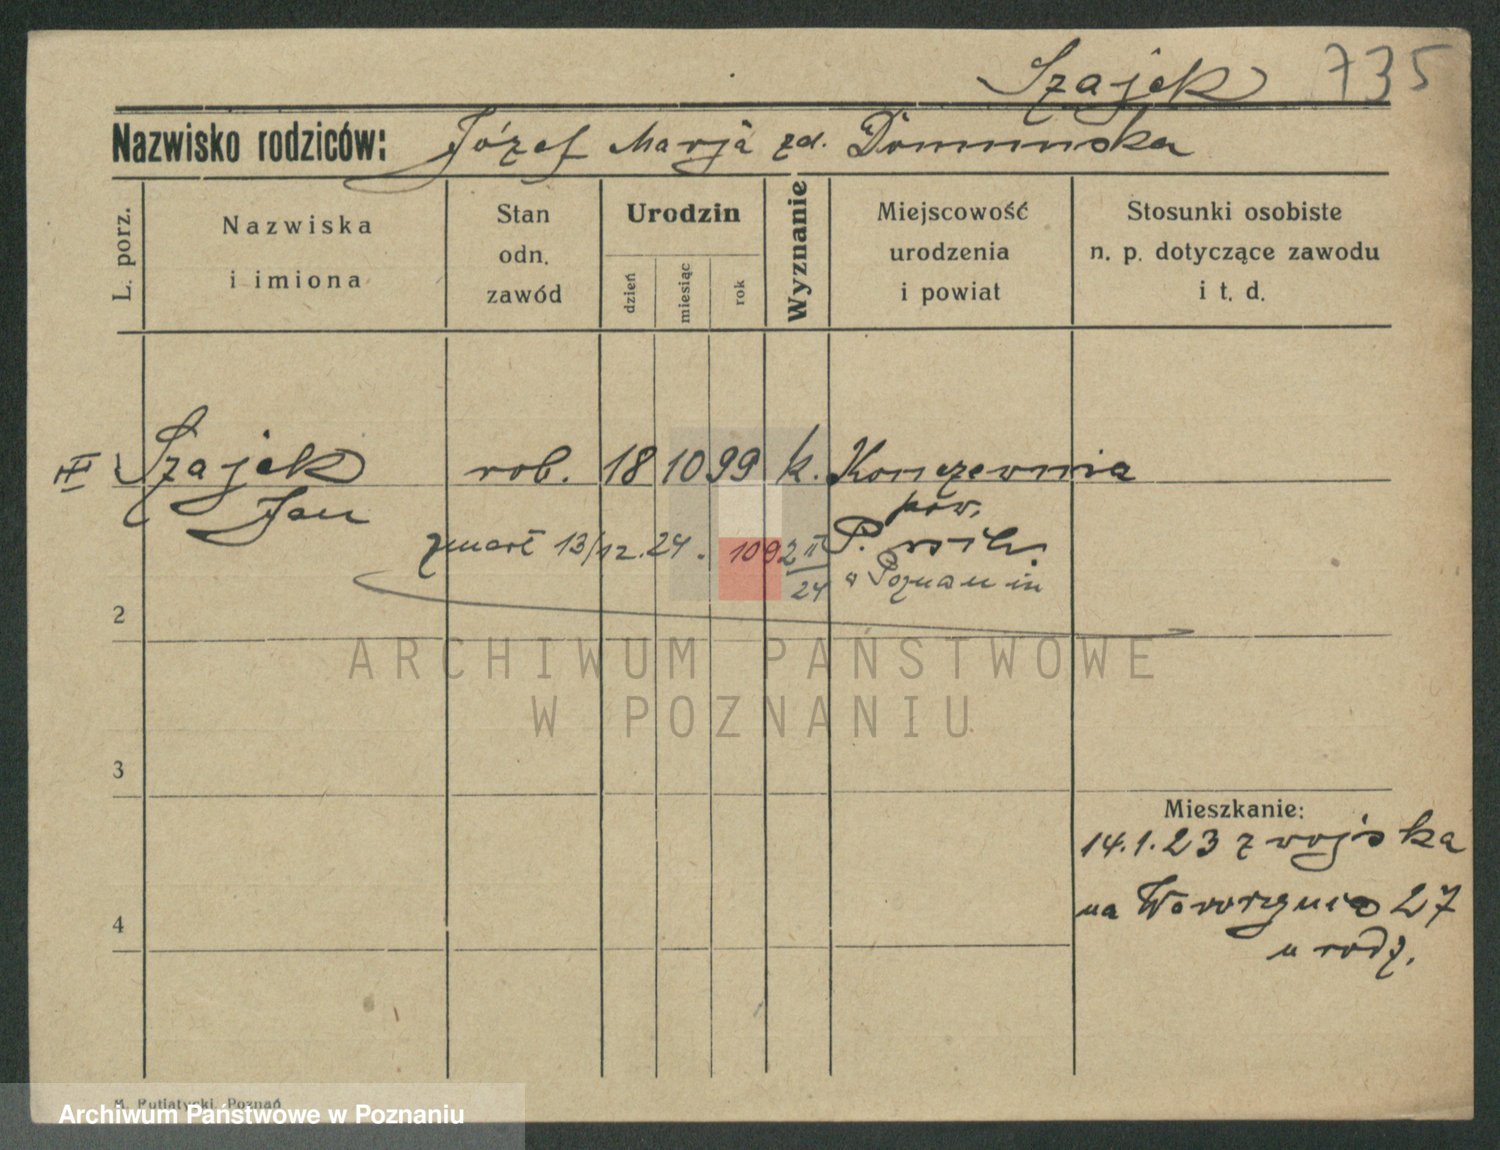 Szajek 735
Nazwisko rodziców: Józef Marja zd.
L. porz.
Nazwiska
i imiona
Stan
odn.
zawód
Urodzin
dzień
miesiąc
rok
Wyznanie
Miejscowość
urodzenia
i powiat
Stosunki osobiste
n. p. dotyczące zawodu
i t. d.
III Szajek rob. 18 10 99 k.
Jan pow.
zmarł 13/12.24. 1092 II/24 P.
w Poznaniu
2
3
Mieszkanie:
14.1.23 z wojska
4
na 27
u rodz.
ARCHIWUM PAŃSTWOWE
W POZNANIU
M. Putiatycki, Poznań
Archiwum Państwowe w Poznaniu